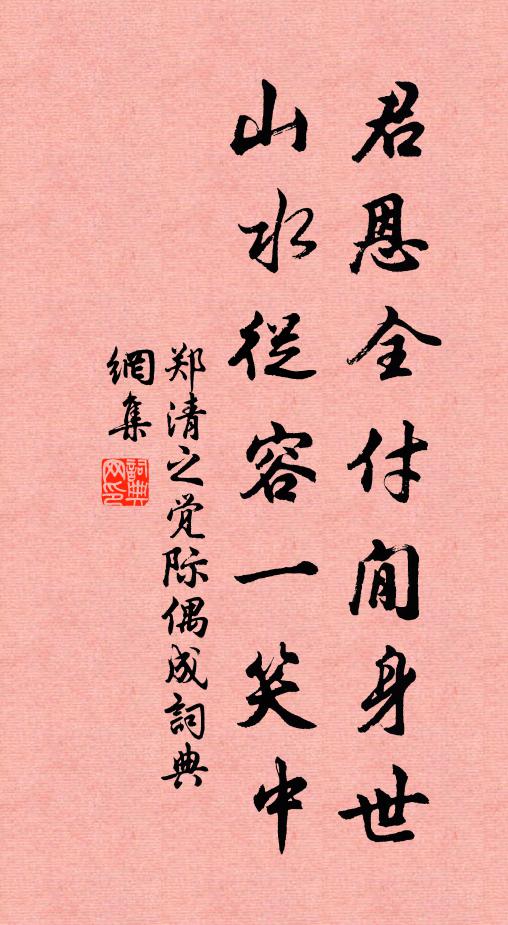 君恩全付閒身世
山水從容一笑中
郑清之觉际偶成詞典
網集
詞典網印